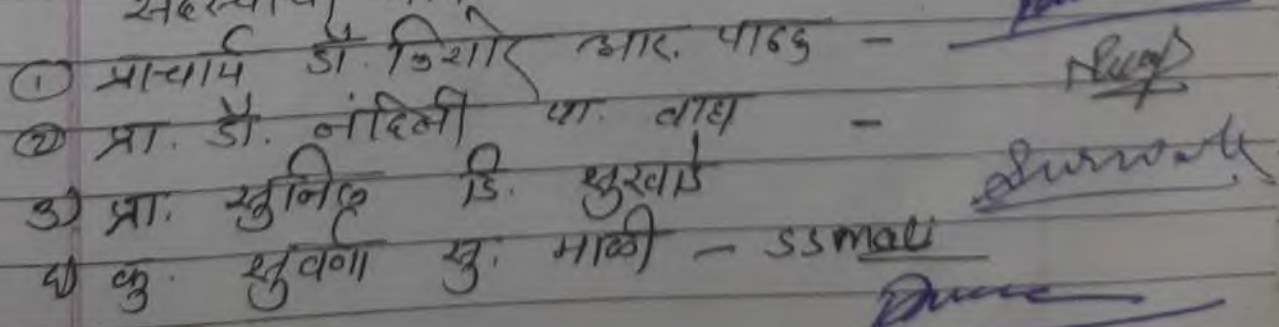 ① प्राचार्य डॉ. किशोर आर. पाठक -
② प्रा. डॉ. नंदिनी पा. वाघ -
3) प्रा. सुनिल डि. सुरवाडे
४) कु. सुवर्णा सु. माळी - SSmali